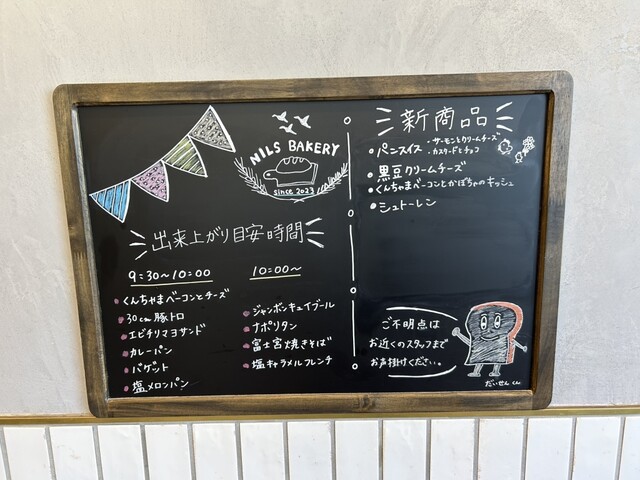 NILS BAKERY
since 2023
出来上がり目安時間
9:30~10:00
くんちゃまベーコンとチーズ
30cm豚トロ
エビチリマヨサンド
カレーパン
バゲット
塩メロンパン
10:00~
ジャンボンキュイブール
ナポリタン
富士宮焼きそば
塩キャラメルフレンチ
新商品
パンスイス ・サーモンとクリームチーズ
・カスタードとチョコ
黒豆クリームチーズ
くんちゃまベーコンとかぼちゃのキッシュ
シュトーレン
ご不明点は
お近くのスタッフまで
お声掛けください。
だいせんくん